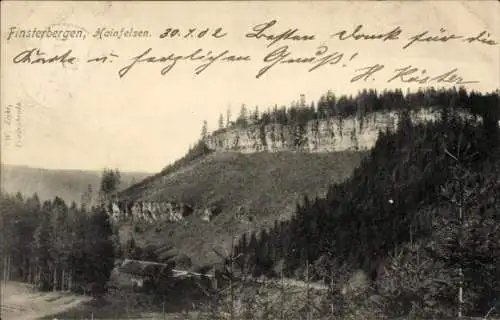 Finsterbergen, Hainfelsen. 30.7.02 Besten Dank für die
Karte u. herzlichen Gruss! H. Köster